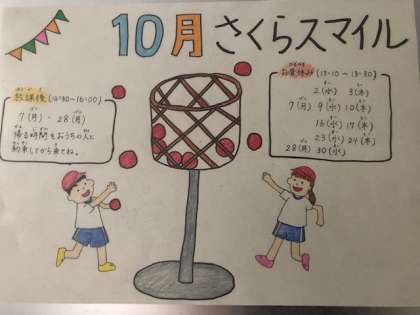 10月さくらスマイル
放課後(14:30~16:00)
7(月)・28(月)
帰る時間をおうちの人に
約束してから来てね。
お昼休み(13:10~13:30)
2(水) 3(木)
7(月) 9(水) 10(木)
16(水) 17(木)
23(水) 24(木)
28(月) 30(水)